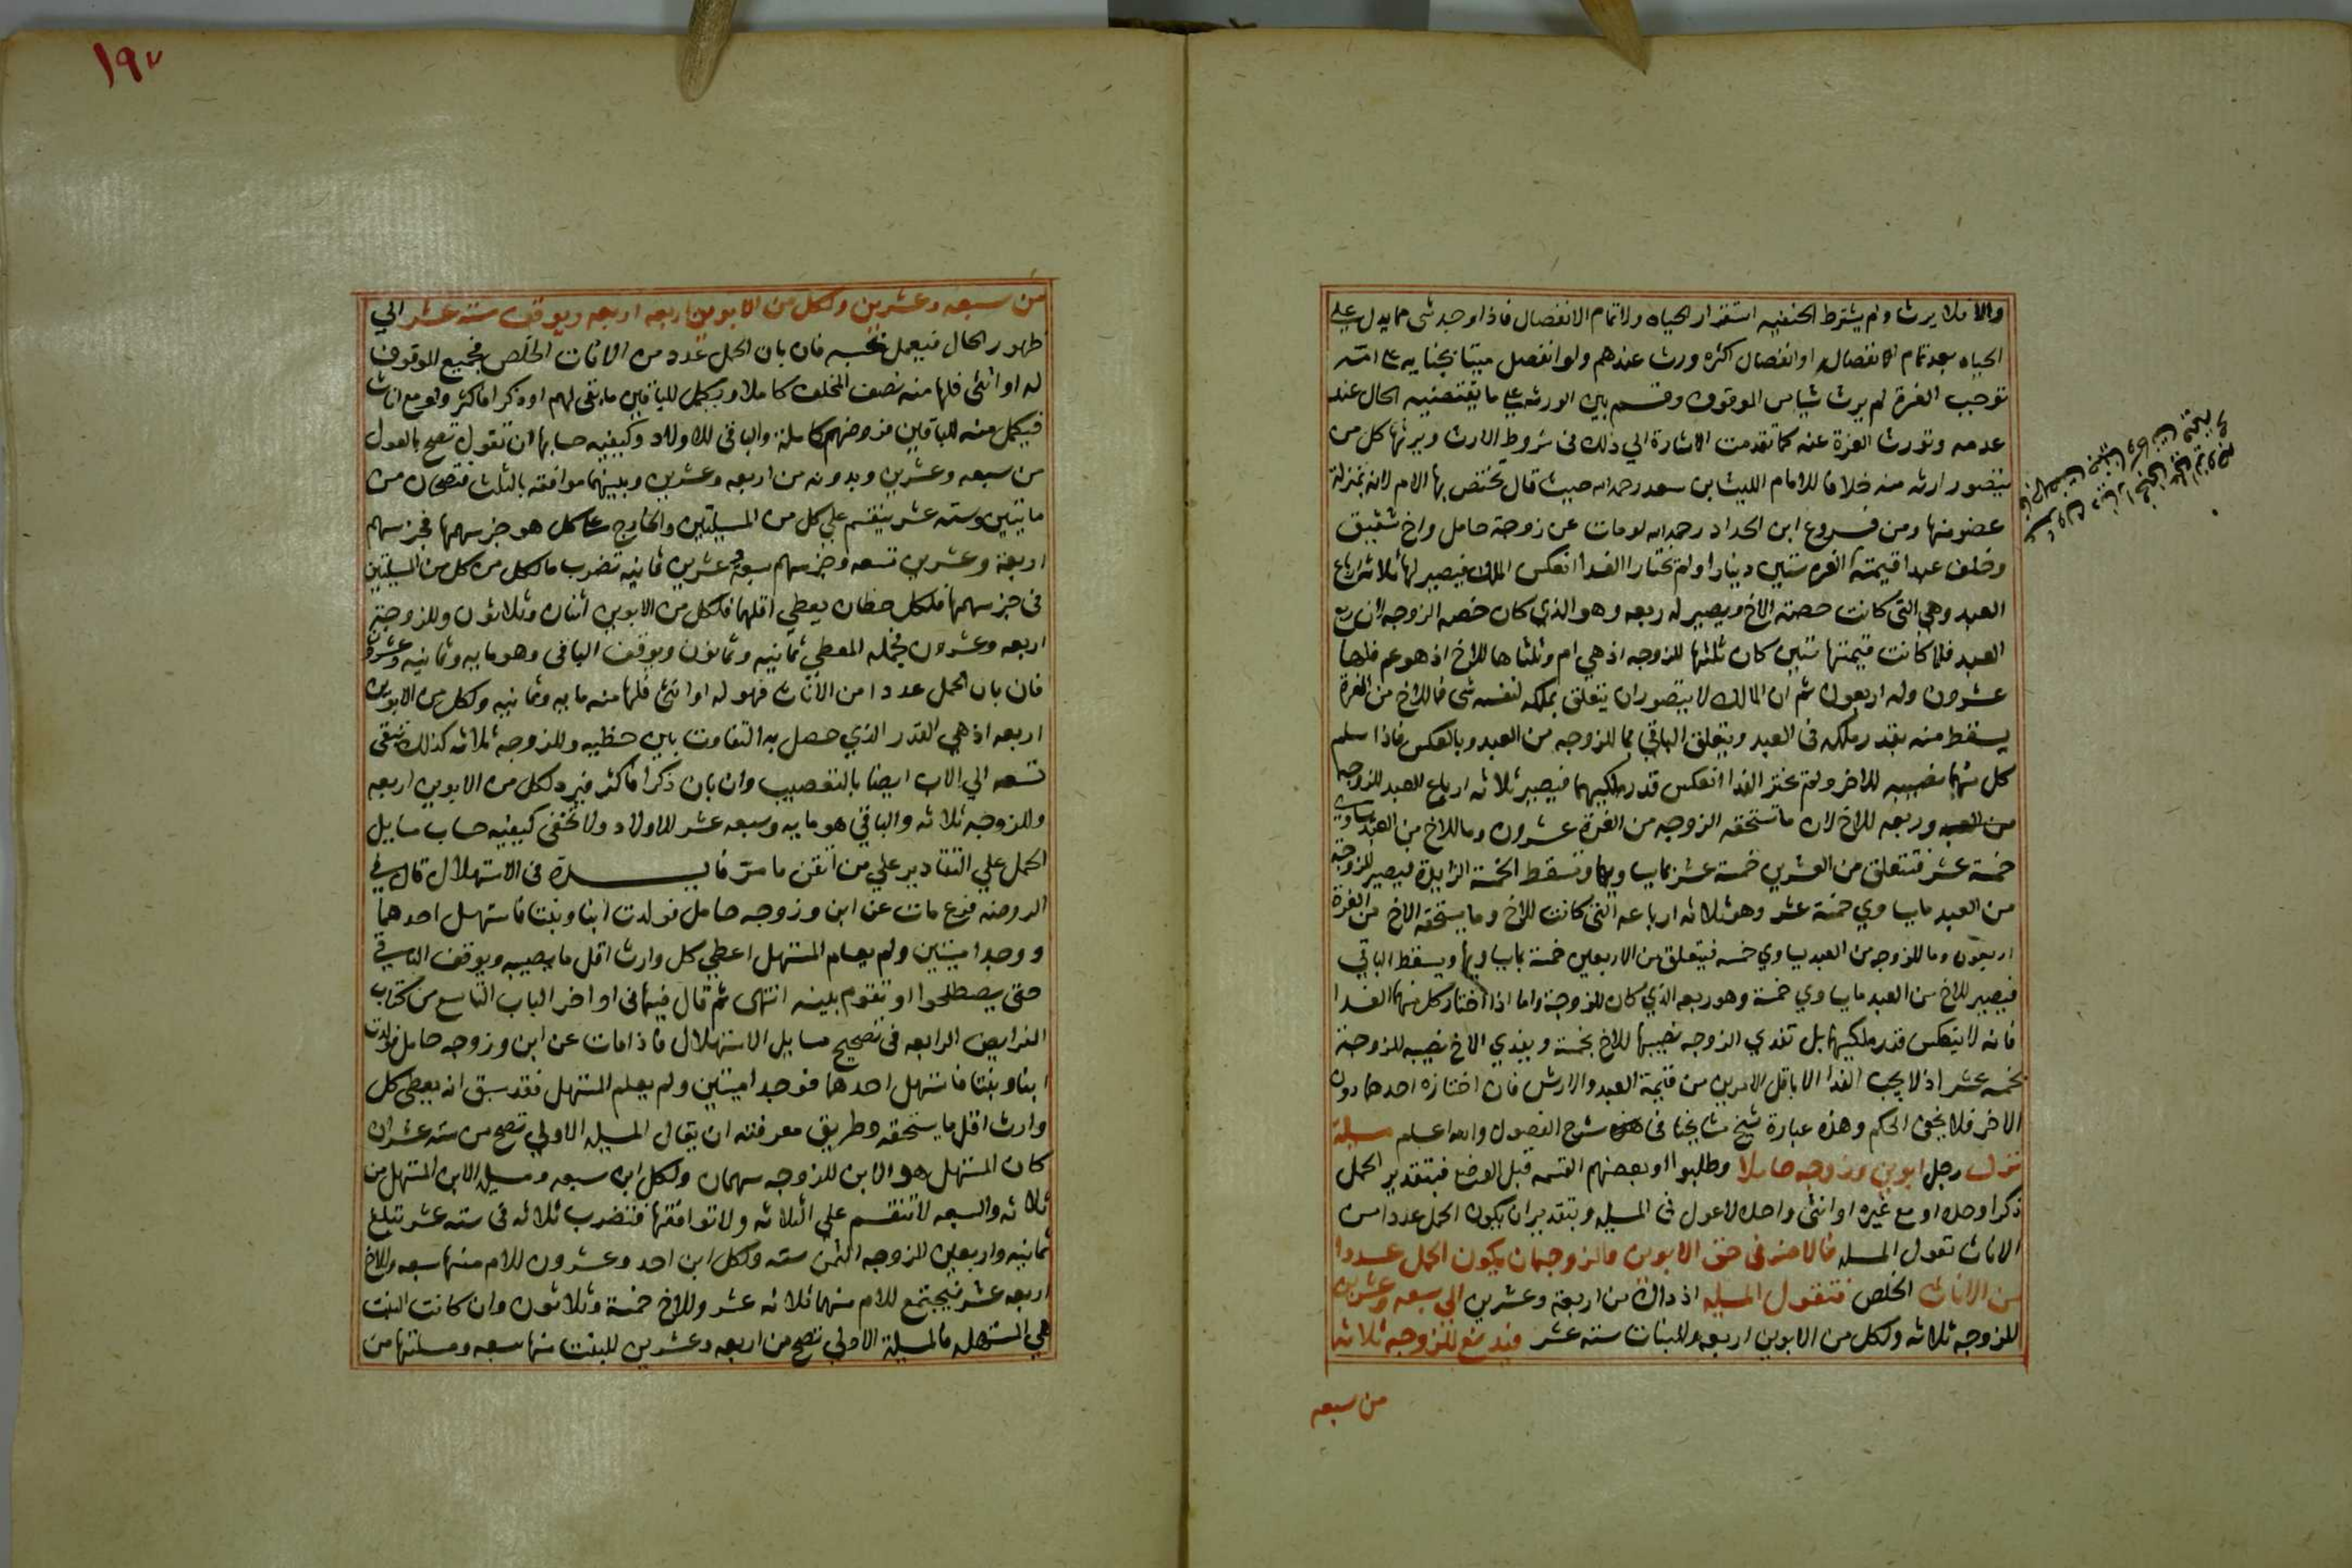 والا فلا يرث ولم يشترط الحنفيه استقرار الحياه ولا تمام الانفصال فاذا وجد شى مما يدل على
الحياه بعد تمام الانفصال او انفصال اكثره ورث عندهم ولو انفصل ميتا بجنايه على امه
توجب الغرة لم يرث شيا من الموقوف وقسم بين الورثه على ما يقتضيه الحال عند
عدمه وتورث الغرة عنه كما تقدمت الاشارة الي ذلك فى شروط الارث ويرثها كل من
يتصور ارثه منه خلافا للامام الليث ابن سعد رحمه الله حيث قال تختص بها الام لانه بمنزلة
عضو منها ومن فروع ابن الحداد رحمه الله لو مات عن زوجة حامل واخ شقيق
وخلف عبدا قيمته الغره ستين دينارا ولم يختارا الفدا انعكس الملك فيصير لها ثلاثة ارباع
العبد وهي التى كانت حصة الاخ ويصير له ربعه وهو الذي كان حصه الزوجه لان ربع
العبد فلما كانت قيمتها ستين كان ثلثها للزوجه اذ هي ام وثلثاها للاخ اذ هو عم فلها
عشرون وله اربعون ثم ان المالك لا يتصور ان يتعلق بملكه لنفسه شى فما للاخ من الغرة
يسقط منه بقدر ملكه فى العبد ويتعلق الباقي بما للزوجه من العبد وبالعكس فاذا سلم
كل منهما نصيبه للاخر ولم يختر الفدا انعكس قدر ملكيهما فيصير ثلاثه ارباع العبد للزوجه
من العبد وربعه للاخ لان ما تستحقه الزوجه من الغرة عشرون وما للاخ من العبد يساوي
خمسة عشر فتتعلق من العشرين خمسة عشر بما يساويها وتسقط الخمسة الزايدة فيصير للزوجة
من العبد ما يساوي خمسة عشر وهو ثلاثه ارباعه التى كانت للاخ وما يستحقه الاخ من الغرة
اربعون وما للزوجه من العبد يساوي خمسه فيتعلق من الاربعين خمسة بما يساويها ويسقط الباقي
فيصير للاخ من العبد ما يساوي خمسة وهو ربعه الذي كان للزوجة واما اذا اختار كل منهما الفدا
فانه لا ينعكس قدر ملكيهما بل تفدي الزوجه نصيبها للاخ بخمسة ويفدي الاخ نصيبه للزوجة
بخمسه عشر اذ لا يجب الفدا الا باقل الامرين من قيمة العبد والارش فان اختاره احدهما دون
الاخر فلا يخفى الحكم وهذه عبارة شيخ مشايخنا فى شرح الفصول والله اعلم مسيلة
ترك رجل ابوين وزوجه حاملا وطلبوا او بعضهم القسمه قبل الوضع فبتقدير الحمل
ذكرا وحده او مع غيره او انثى واحده لا عول فى المسيله وبتقدير ان يكون الحمل عددا من
الاناث تعول المسله فالاضر فى حق الابوين والزوجه ان يكون الحمل عددا
من الاناث الخلص فتعول المسيله اذ ذاك من اربعة وعشرين الى سبعه وعشرين
للزوجه ثلاثه ولكل من الابوين اربعه وللبنات سته عشر فيدفع للزوجه ثلاثه
من سبعه
١٩٧
من سبعه وعشرين ولكل من الابوين اربعه اربعه ويوقف سته عشر الي
ظهور الحال فيعمل بحسبه فان بان الحمل عدد من الاناث الخلص فجميع الموقوف
له او انثى فلها منه نصف المخلف كاملا ويكمل للباقين ما بقى لهم او ذكرا فاكثر ولو مع اناث
فيكمل منه للباقين فروضهم كاملة والباقى للاولاد وكيفيه حسابها ان تقول تصح بالعول
من سبعه وعشرين وبدونه من اربعه وعشرين وبينهما موافقه بالثلث فتصحان من
مايتين وسته عشر ينقسم علي كل من المسيلتين والخارج على كل هو جز سهمها فجز سهم
اربعة وعشرين تسعه وجز سهم سبعة وعشرين ثمانيه تضرب ما لكل من كل من المسيلتين
فى جز سهمها فلكل حظان يعطي اقلهما فلكل من الابوين اثنان وثلاثون وللزوجة
اربعه وعشرون فجمله المعطي ثمانيه وثمانون ويوقف الباقى وهو مايه وثمانيه وعشرون
فان بان الحمل عددا من الاناث فهو له او انثى فلها منه مايه وثمانيه ولكل من الابوين
اربعه اذ هي القدر الذي حصل به التفاوت بين حظيه وللزوجه ثلاثه كذلك تبقى
تسعه الي الاب ايضا بالتعصيب وان بان ذكرا فاكثر فيرد لكل من الابوين اربعه
وللزوجه ثلاثه والباقي هو مايه وسبعه عشر للاولاد ولا تخفى كيفيه حساب مسايل
الحمل علي التقادير علي من اتقن ما مر فايدة فى الاستهلال قال فى
الروضه فرع مات عن ابن وزوجه حامل فولدت ابنا وبنتا فاستهل احدهما
ووجدا ميتين ولم يعلم المستهل اعطي كل وارث اقل ما يصيبه ويوقف الباقي
حتى يصطلحوا او تقوم بينه انتهى ثم قال فيها فى اواخر الباب التاسع من كتاب
الفرايض الرابعه فى تصحيح مسايل الاستهلال فاذا مات عن ابن وزوجه حامل فولدت
ابنا وبنتا فاستهل احدهما فوجدا ميتين ولم يعلم المستهل فقد سبق انه يعطى كل
وارث اقل ما يستحقه وطريق معرفته ان يقال المسيله الاولي تصح من سته عشر ان
كان المستهل هو الابن للزوجه سهمان ولكل ابن سبعه ومسيله الابن المستهل من
ثلاثه والسبعه لا تنقسم علي الثلاثه ولا توافقها فتضرب ثلاثه فى سته عشر تبلغ
ثمانيه واربعين للزوجه الثمن سته ولكل ابن احد وعشرون للام منها سبعه وللاخ
اربعه عشر فيجتمع للام منهما ثلاثه عشر وللاخ خمسة وثلاثون وان كانت البنت
هي المستهله فالمسيلة الاولي تصح من اربعه وعشرين للبنت منها سبعه ومسلتها من